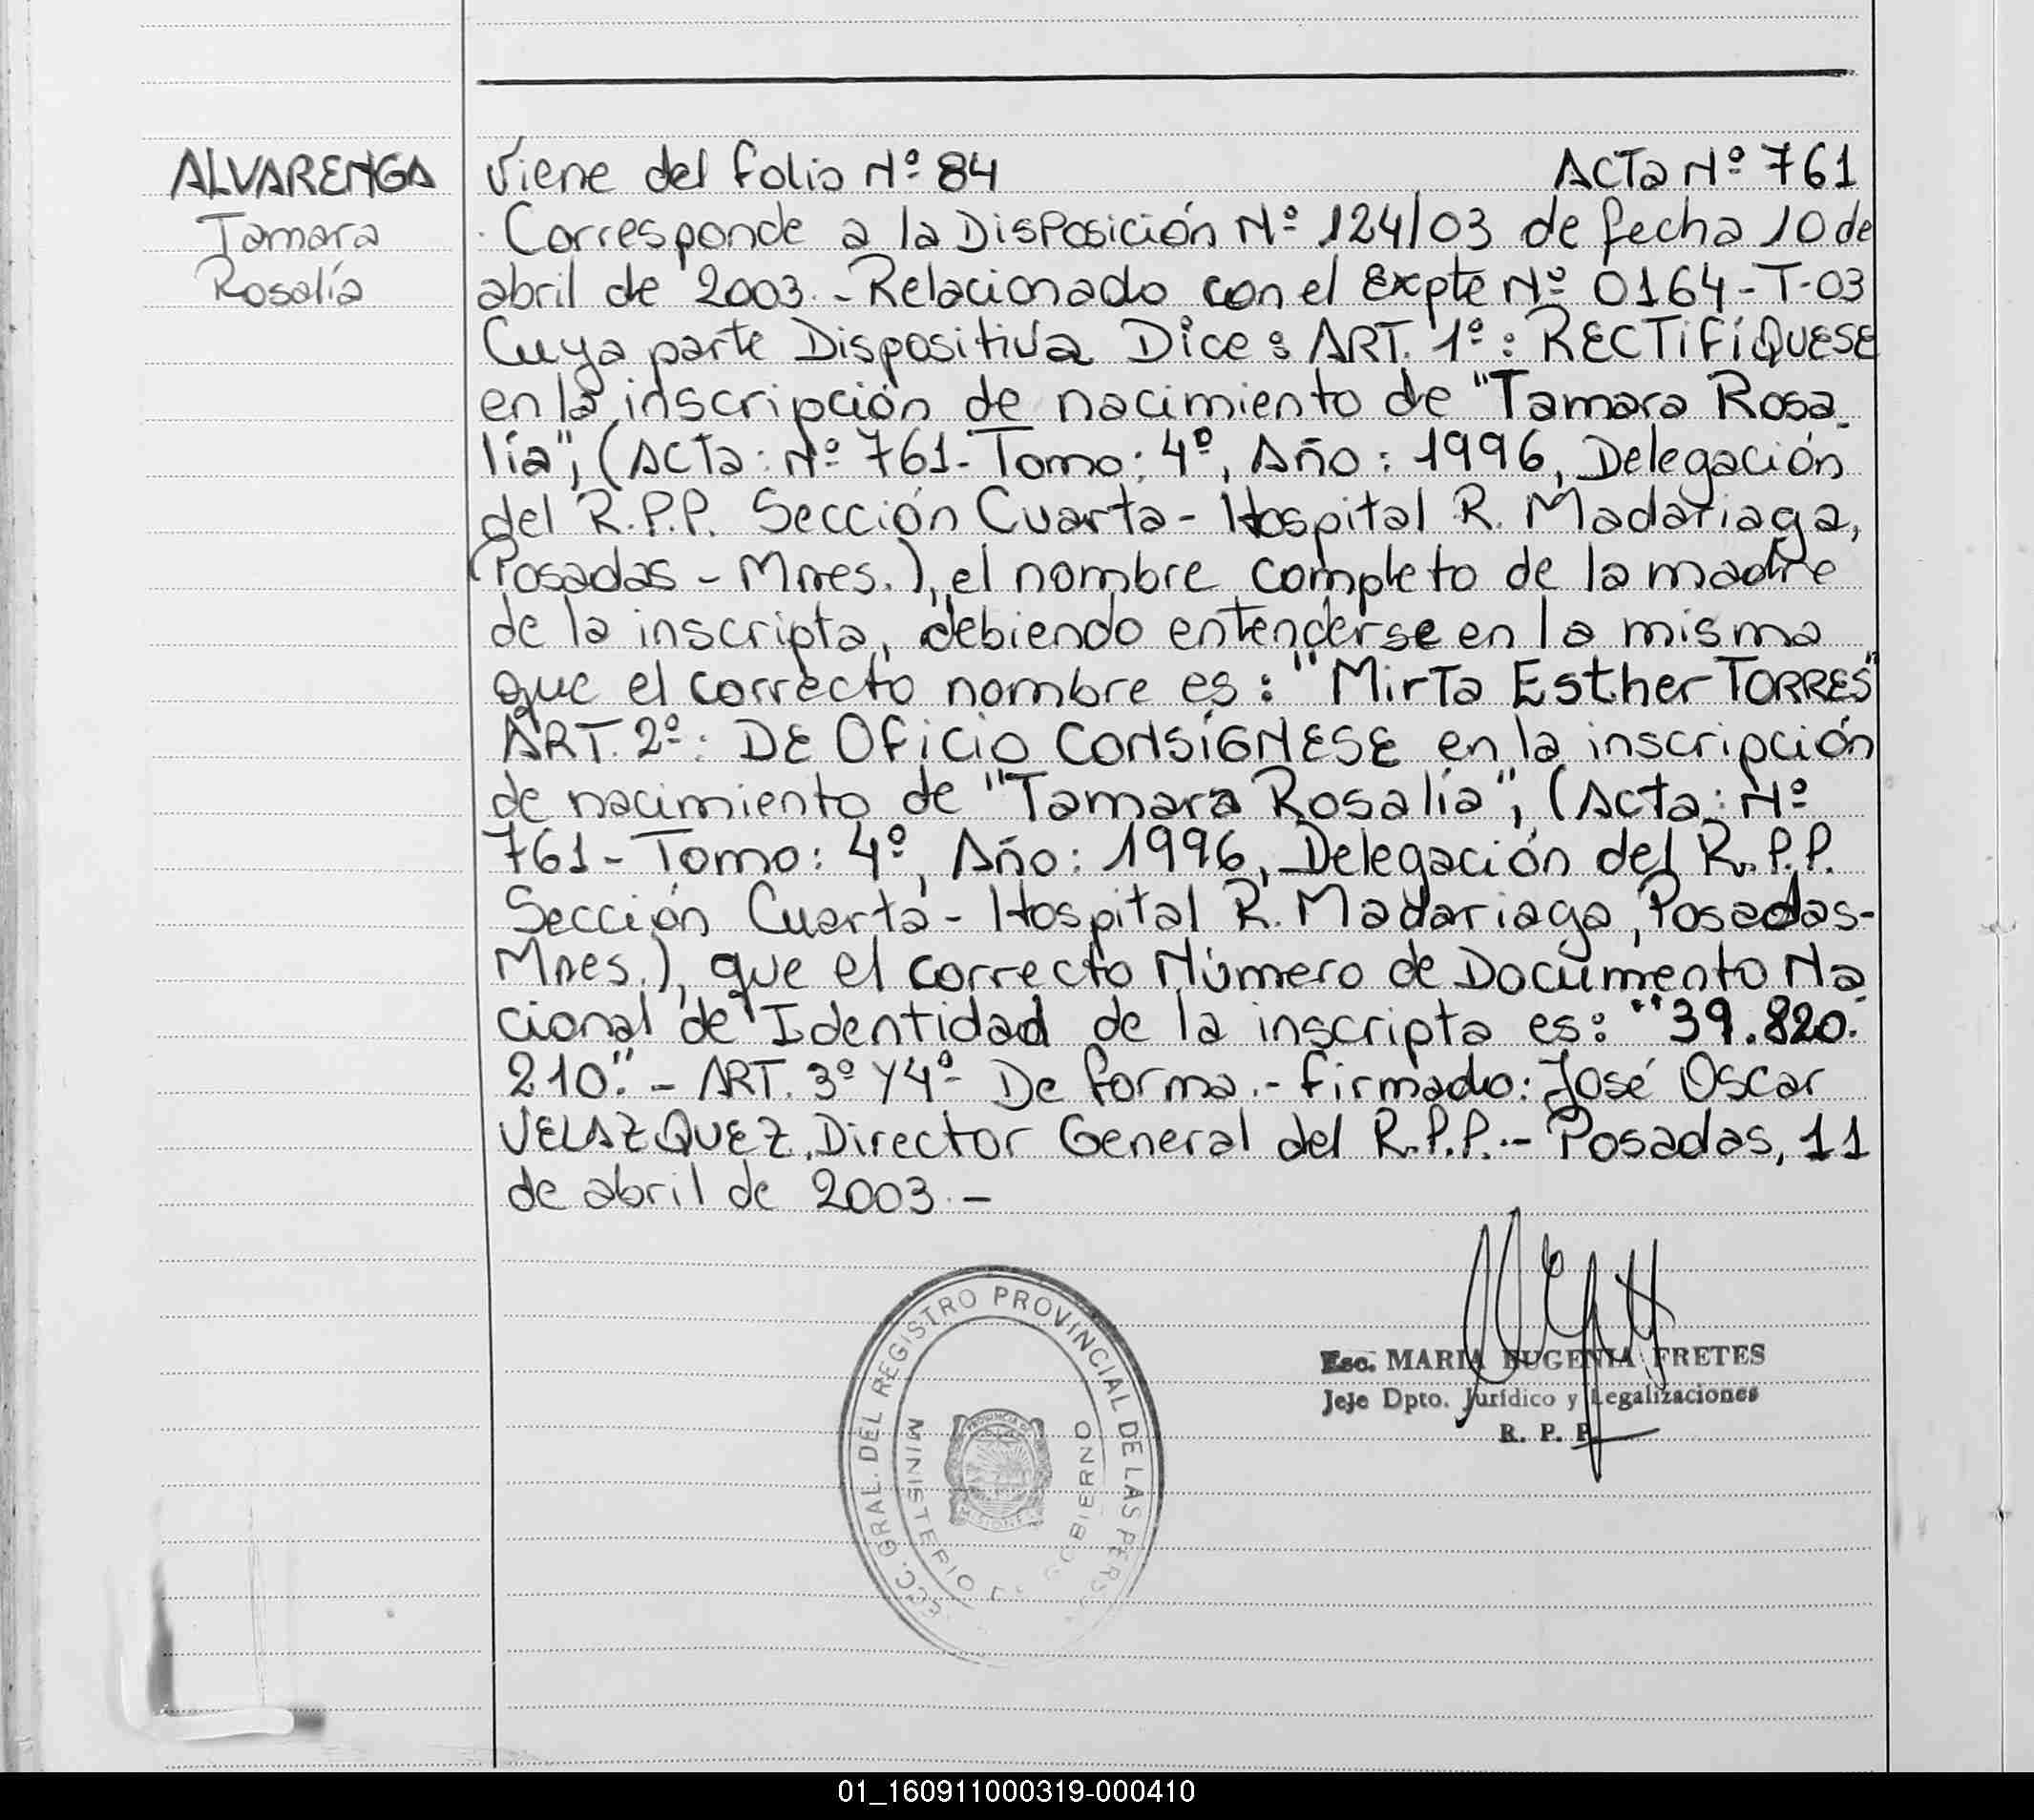 ALVARENGA
Tamara
Rosalía
Viene del folio Nº 84 ACTA Nº 761
Corresponde a la DisPosición Nº 124/03 de fecha 10 de
abril de 2003.- Relacionado con el Expte Nº 0164-T-03
Cuya parte Dispositiva Dice: ART. 1º: RECTIFÍQUESE
en la inscripción de nacimiento de "Tamara Rosa_
lía", (ACTA: Nº 761- Tomo: 4º, Año: 1996, Delegación
del R.P.P. Sección Cuarta - Hospital R. Madariaga,
Posadas - Mnes.), el nombre completo de la madre
de la inscripta, debiendo entenderse en la misma
que el correcto nombre es: "MirTa Esther TORRES"
ART. 2º: DE OFicio CONSÍGNESE en la inscripción
de nacimiento de "Tamara Rosalía", (Acta: Nº
761- Tomo: 4º, Año: 1996, Delegación del R.P.P.
Sección Cuarta - Hospital R. Madariaga, Posadas-
Mnes.), que el correcto Número de Documento Na_
cional de Identidad de la inscripta es: "39.820.
210".- ART. 3º Y 4º- De forma.- firmado: José Oscar
VELAZQUEZ, Director General del R.P.P.-- Posadas, 11
de abril de 2003.-
Esc. MARIA EUGENIA FRETES
Jefe Dpto. Jurídico y Legalizaciones
R. P. P.
GRAL. DEL REGISTRO PROVINCIAL DE LAS PERS
MINISTERIO GOBIERNO
PROVINCIA DE
MISIONES
01_160911000319-000410